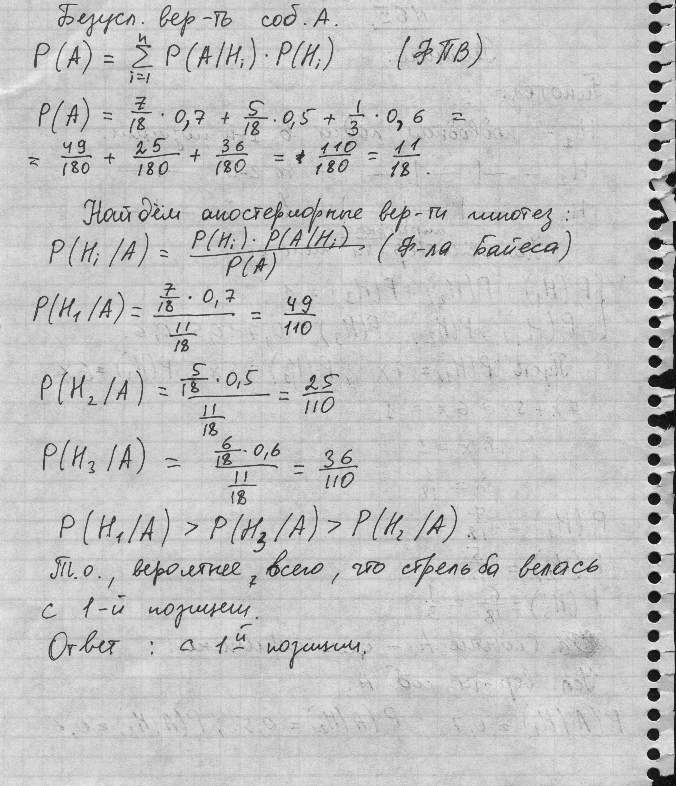 Безусл. вер-ть соб. А.
P(A) = n ∑ i=1 P(A/Hi) · P(Hi) (ФПВ)
P(A) = 7/18 · 0,7 + 5/18 · 0,5 + 1/3 · 0,6 =
= 49/180 + 25/180 + 36/180 = 110/180 = 11/18.
Найдём апостериорные вер-ти гипотез:
P(Hi/A) = P(Hi) · P(A/Hi) / P(A) (Ф-ла Байеса)
P(H1/A) = 7/18 · 0,7 / 11/18 = 49/110
P(H2/A) = 5/18 · 0,5 / 11/18 = 25/110
P(H3/A) = 6/18 · 0,6 / 11/18 = 36/110
P(H1/A) > P(H3/A) > P(H2/A)
Т.о., вероятнее всего, что стрельба велась
с 1-й позиции.
Ответ : с 1й позиции.